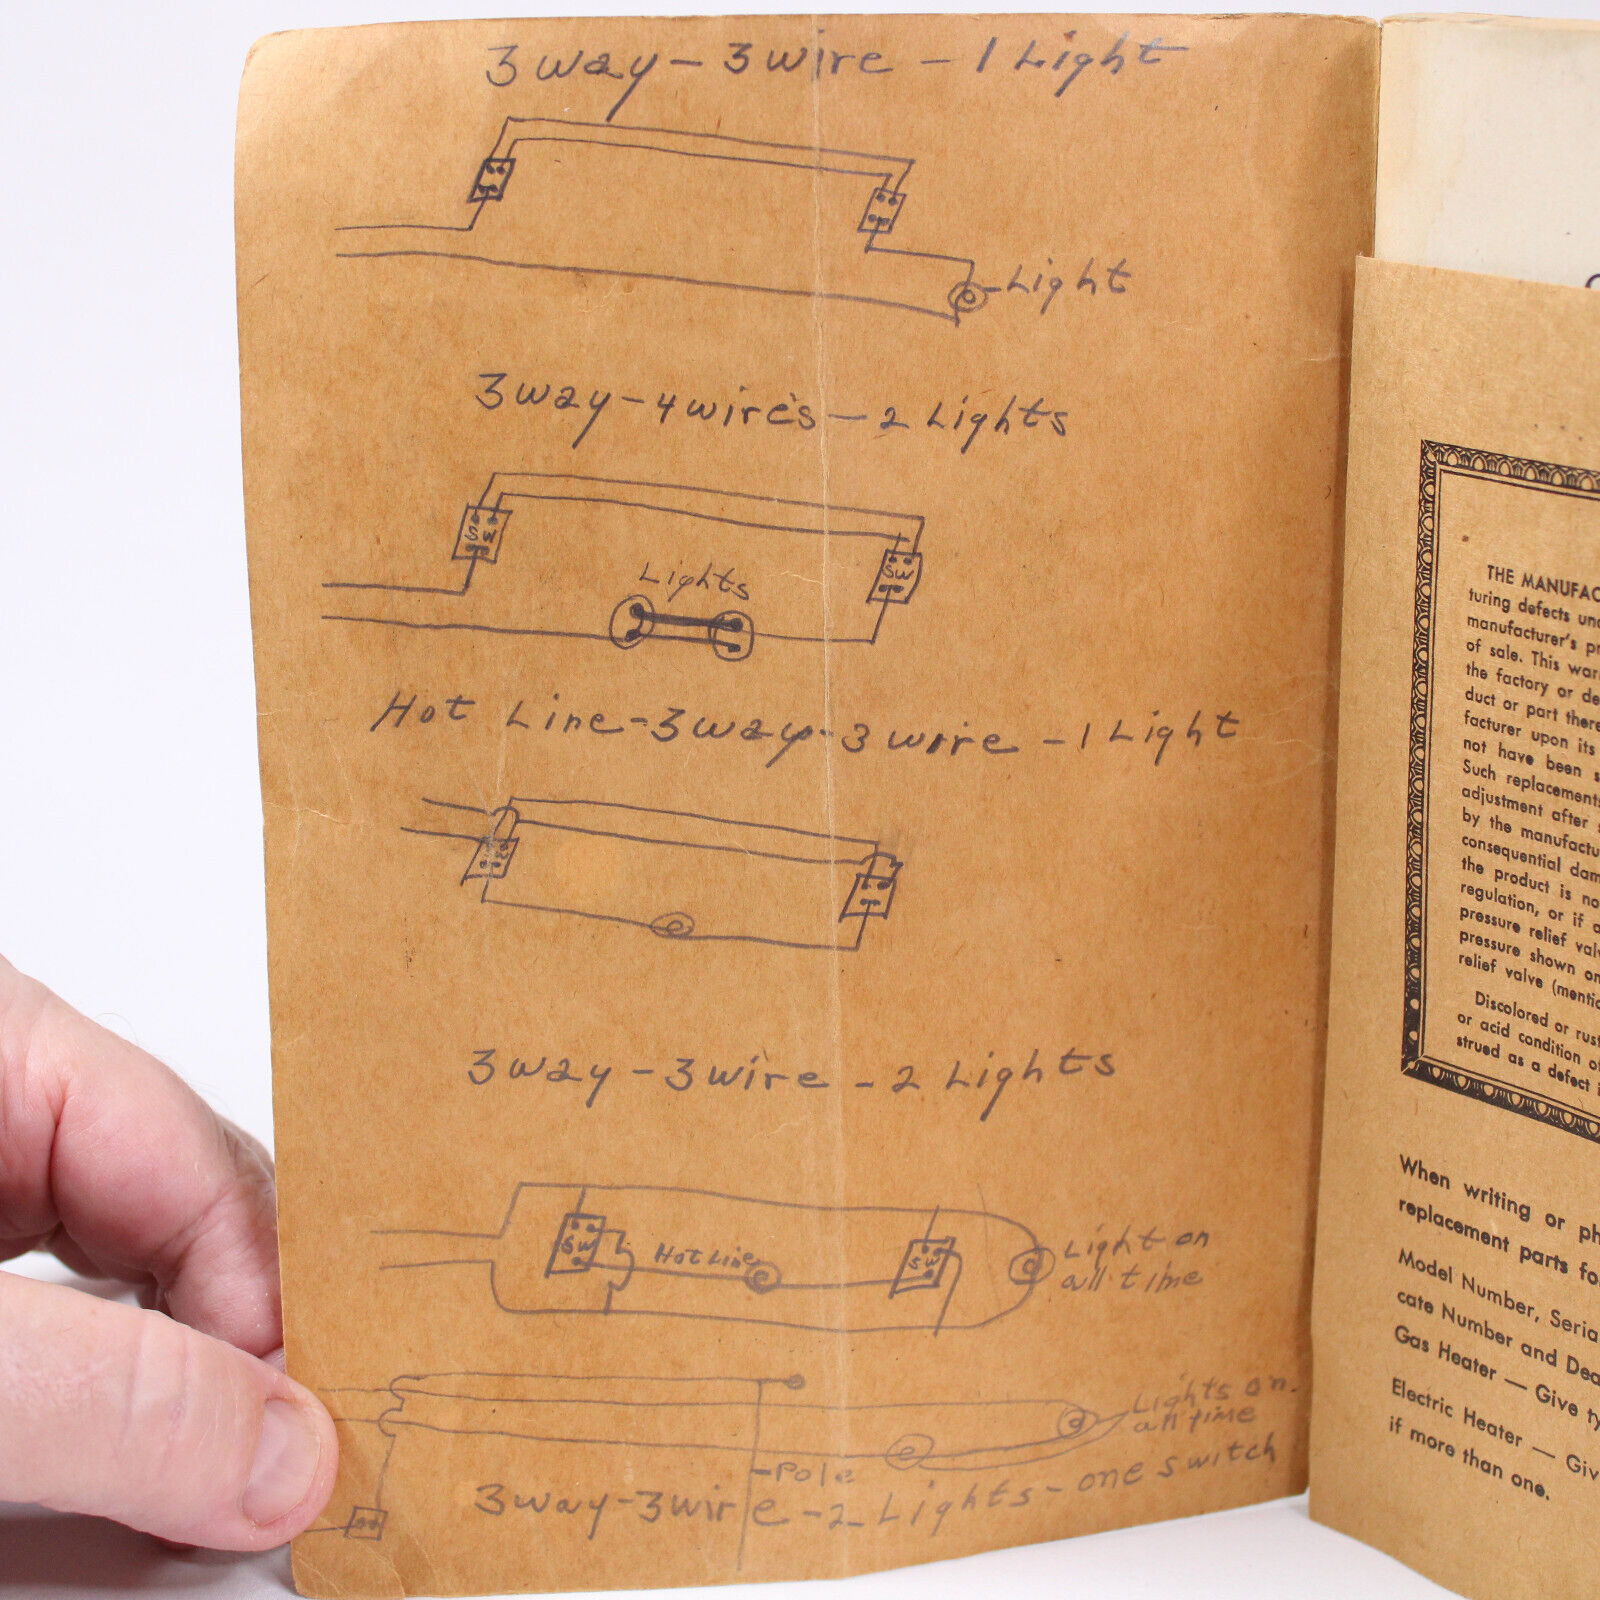 3 way - 3 wire - 1 Light
- Light
3 way - 4 wires - 2 Lights
SW
SW
Lights
Hot Line - 3 way - 3 wire - 1 Light
3 way - 3 wire - 2 Lights
SW
Hot Line
SW
Light on
all time
Lights on
all time
- Pole
3 way - 3 wire - 2 - Lights - one switch
THE MANUFAC
turing defects und
manufacturer's pr
of sale. This warr
the factory or de
duct or part there
facturer upon its
not have been s
Such replacements
adjustment after
by the manufactu
consequential dam
the product is no
regulation, or if a
pressure relief valv
pressure shown on
relief valve (mentio
Discolored or rust
or acid condition of
strued as a defect i
When writing or ph
replacement parts fo
Model Number, Seria
cate Number and Dea
Gas Heater — Give ty
Electric Heater — Giv
if more than one.